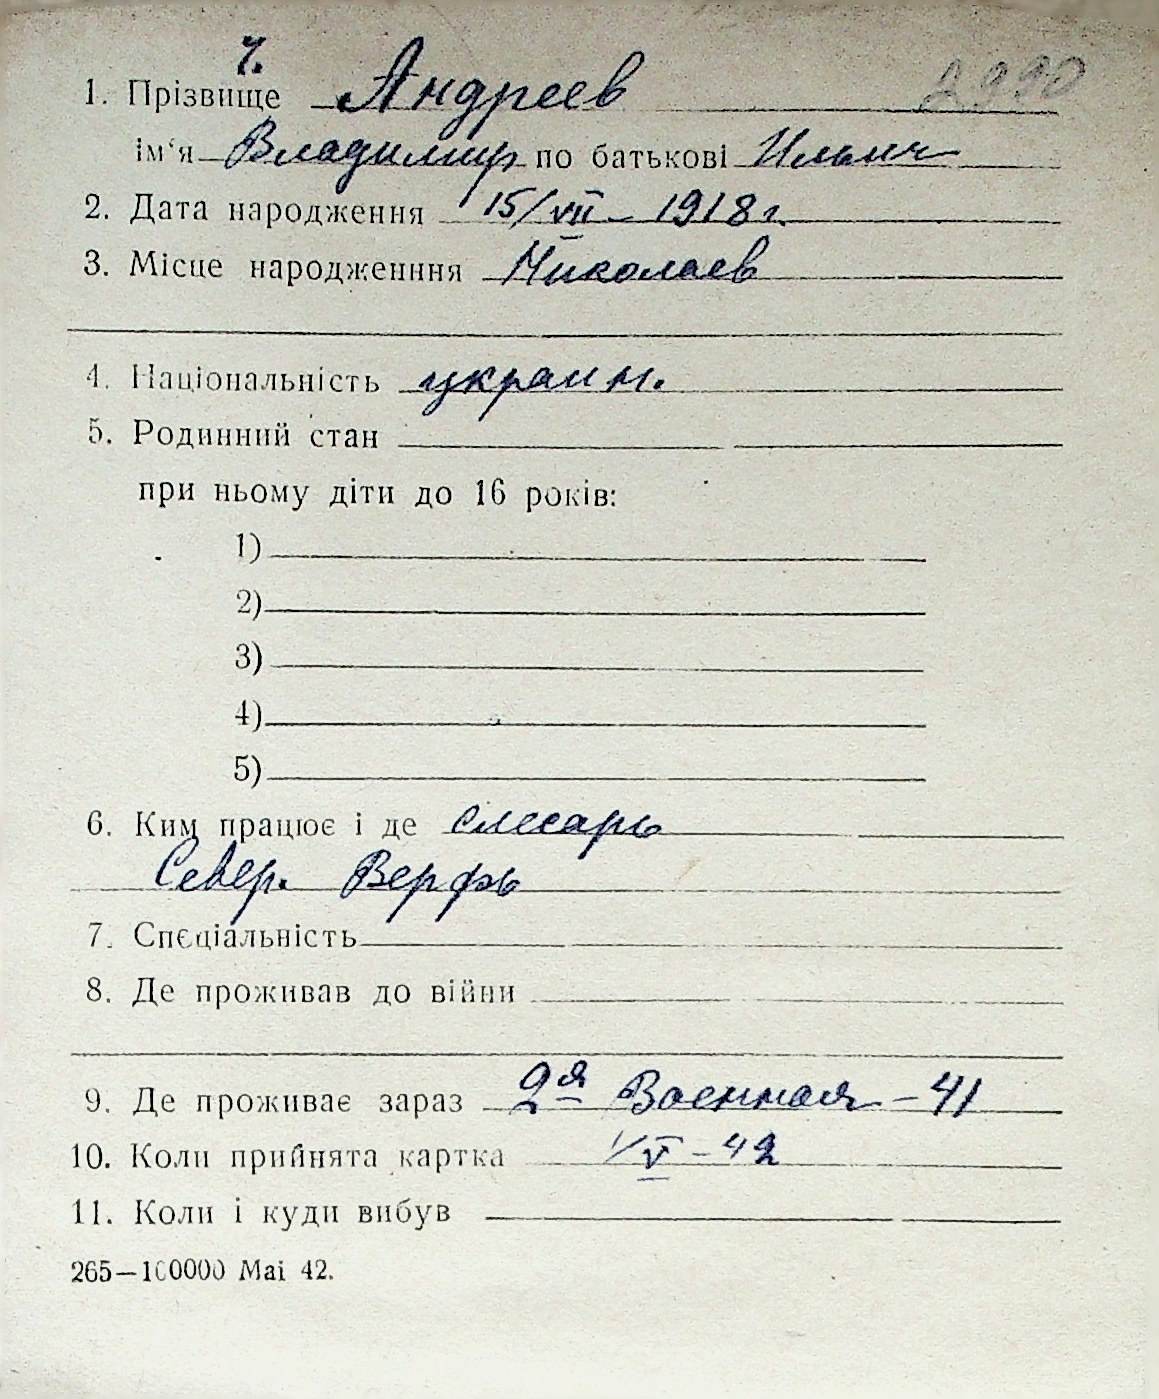 ч.
1. Прізвище Андреев 2990
ім'я Владимир по батькові Ильич
2. Дата народження 15/VII – 1918 г.
3. Місце народженння Николаев
4. Національність украин.
5. Родинний стан
при ньому діти до 16 років:
1)
2)
3)
4)
5)
6. Ким працює і де слесарь
Север. Верфь
7. Спєціальність
8. Де проживав до війни
9. Де проживає зараз 2я Военная – 41
10. Коли прийнята картка 1/V – 42
11. Коли і куди вибув
265—100000 Mai 42.